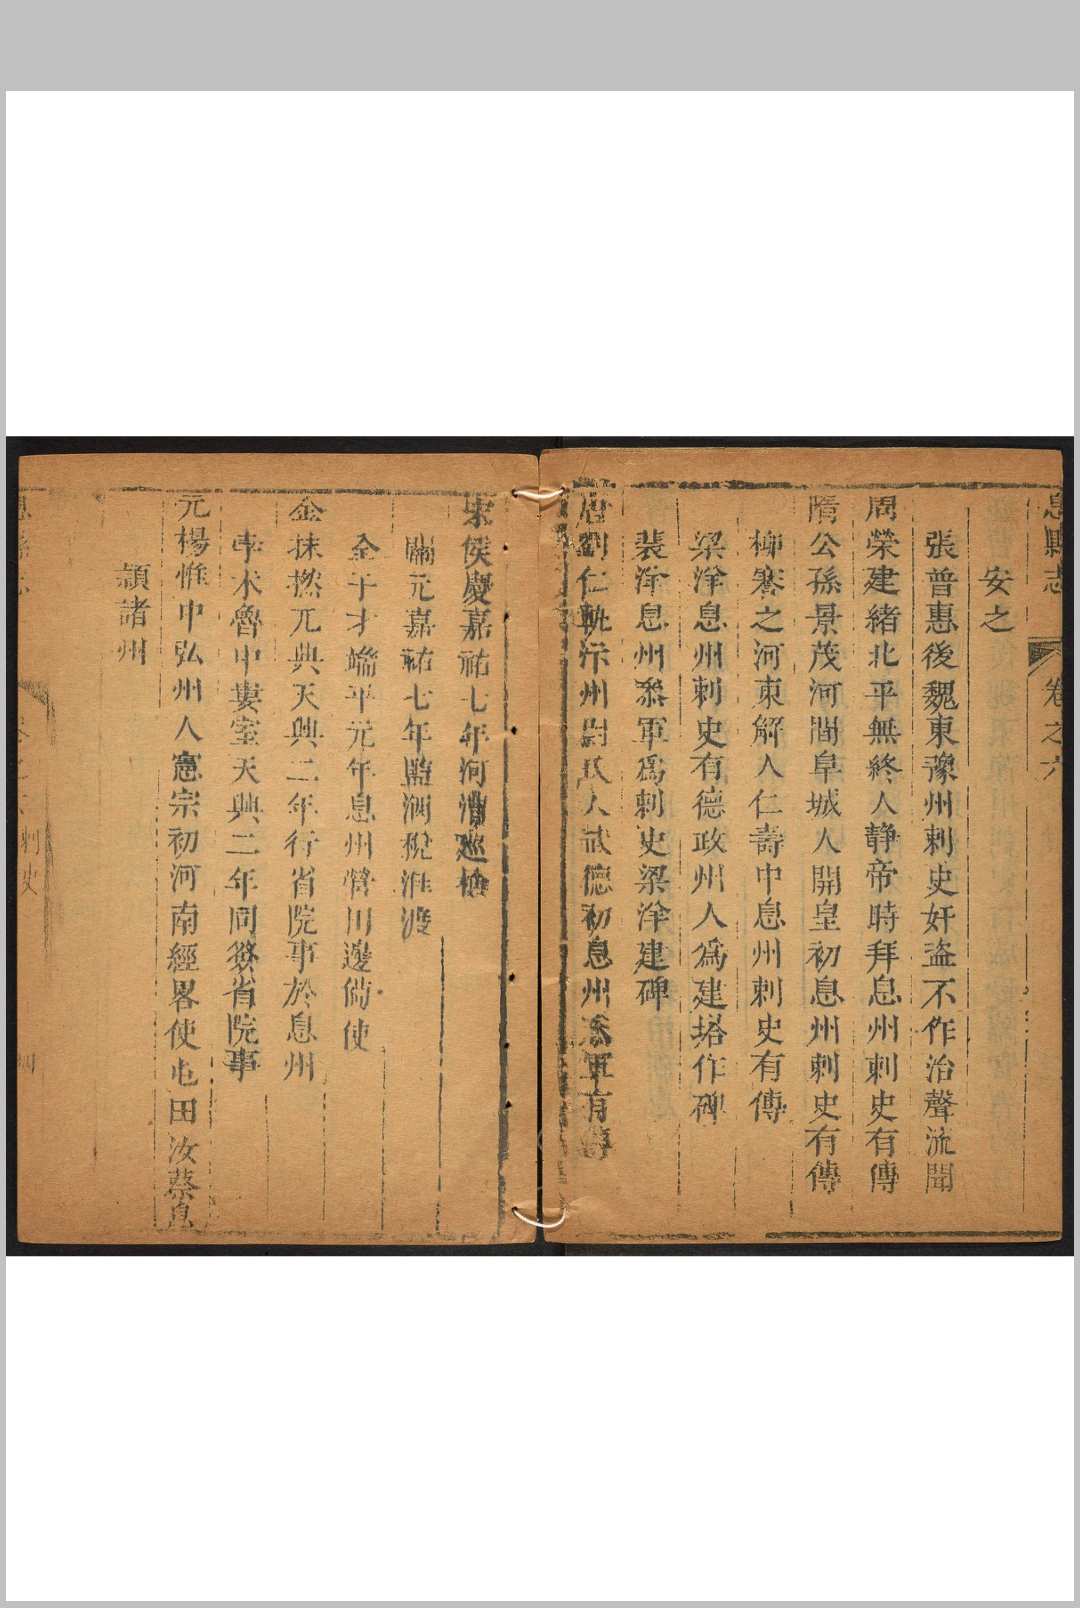 息縣志
卷之六
安之
張普惠後魏東豫州刺史奸盗不作治聲流聞
周榮建緒北平無終人静帝時拜息州刺史有傳
隋公孫景茂河間阜城人開皇初息州刺史有傳
柳謇之河東解人仁壽中息州刺史有傳
梁洋息州刺史有德政州人爲建塔作碑
裴洋息州叅軍爲刺史梁洋建碑
唐劉仁軌汴州尉氏人武德初息州叅軍有傳
宋侯慶嘉祐七年河漕
關元嘉祐七年監 税淮渡
全干才端平元年息州營田邊 使
金抹撚兀典天興二年行省院事於息州
孛术魯中婁室天興二年同簽省院事
元楊惟中弘州人憲宗初河南經畧使屯田汝蔡息
潁諸州
息縣志
卷之六 刺史